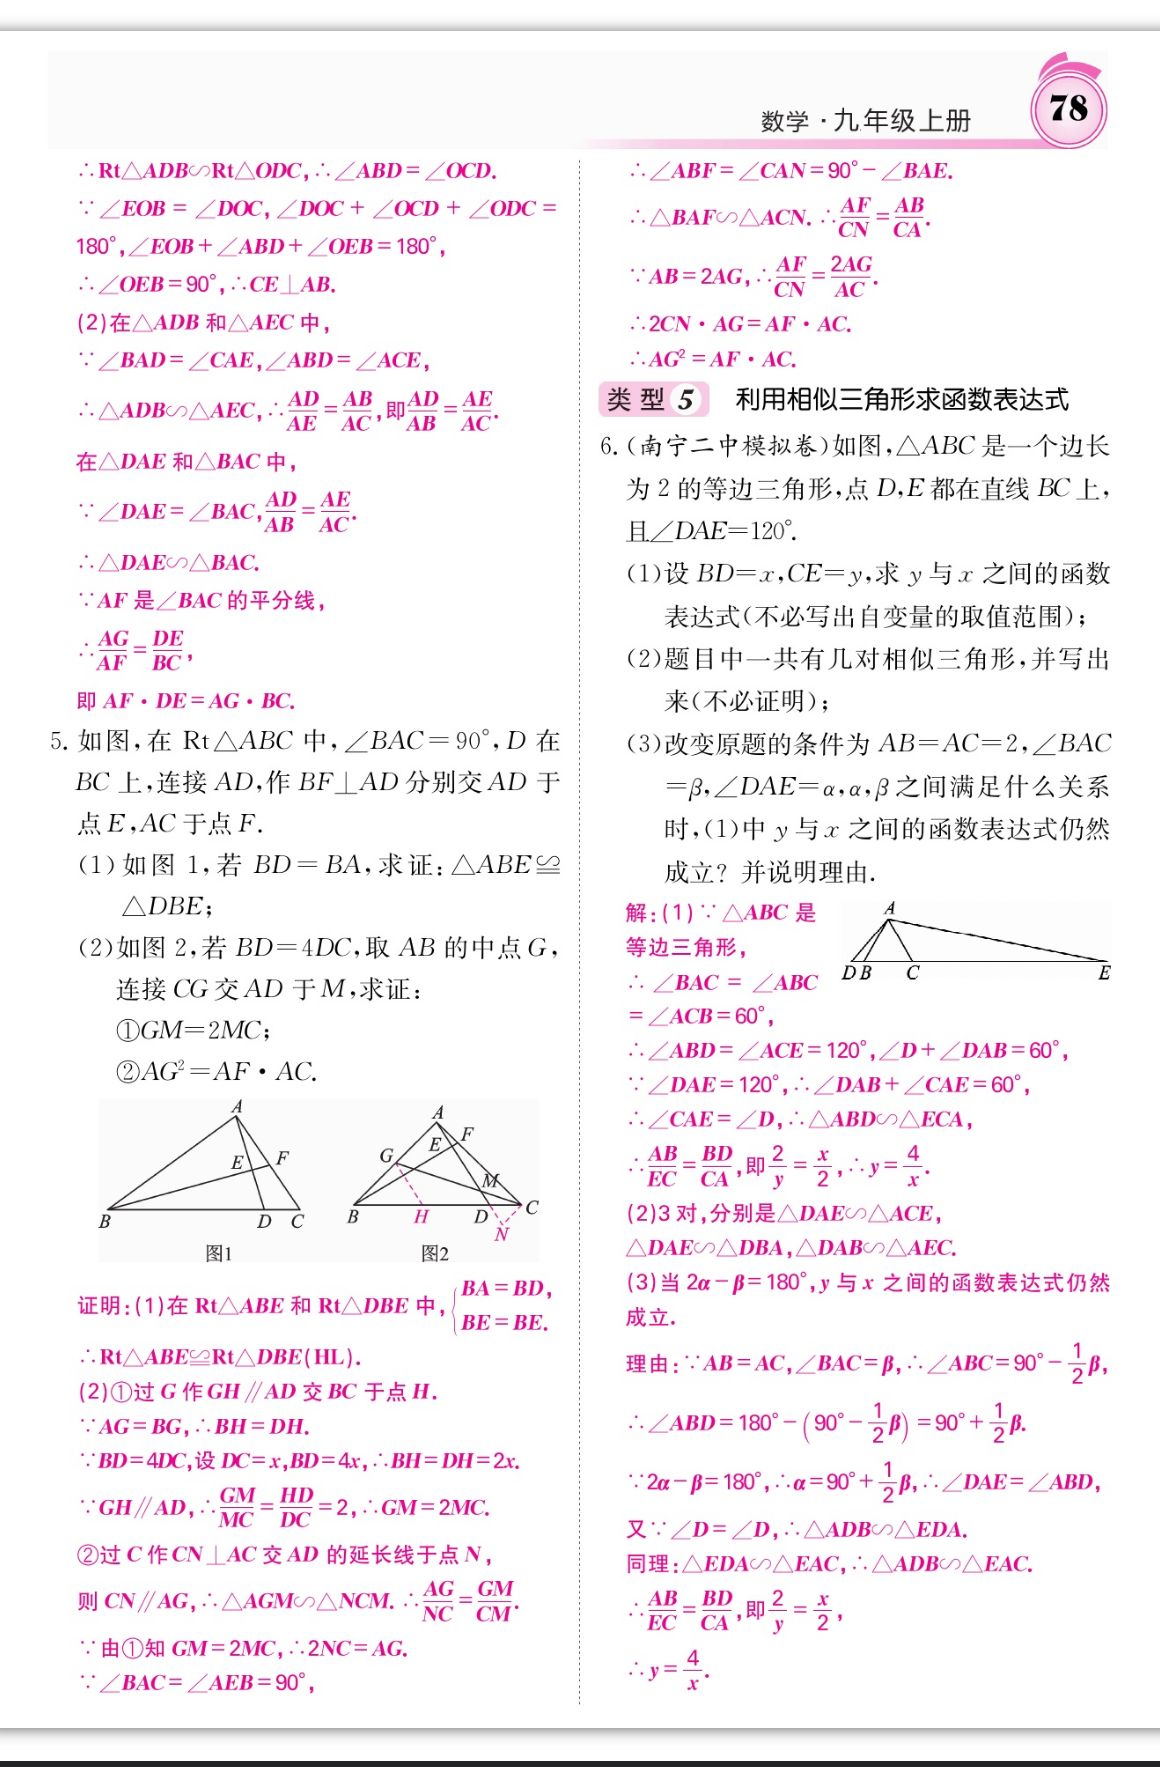 数学·九年级上册
78
∴Rt△ADB∽Rt△ODC,∴∠ABD=∠OCD.
∵∠EOB=∠DOC,∠DOC+∠OCD+∠ODC=
180°,∠EOB+∠ABD+∠OEB=180°,
∴∠OEB=90°,∴CE⊥AB.
(2)在△ADB和△AEC中,
∵∠BAD=∠CAE,∠ABD=∠ACE,
∴△ADB∽△AEC,∴AD/AE=AB/AC,即AD/AB=AE/AC.
在△DAE和△BAC中,
∵∠DAE=∠BAC,AD/AB=AE/AC.
∴△DAE∽△BAC.
∵AF是∠BAC的平分线,
∴AG/AF=DE/BC,
即AF·DE=AG·BC.
5.如图,在Rt△ABC中,∠BAC=90°,D在
BC上,连接AD,作BF⊥AD分别交AD于
点E,AC于点F.
(1)如图1,若BD=BA,求证:△ABE≌
△DBE;
(2)如图2,若BD=4DC,取AB的中点G,
连接CG交AD于M,求证:
①GM=2MC;
②AG²=AF·AC.
A
E
F
B
D
C
图1
A
E
F
G
M
B
H
D
C
N
图2
证明:(1)在Rt△ABE和Rt△DBE中,{BA=BD,
BE=BE.
∴Rt△ABE≌Rt△DBE(HL).
(2)①过G作GH∥AD交BC于点H.
∵AG=BG,∴BH=DH.
∵BD=4DC,设DC=x,BD=4x,∴BH=DH=2x.
∵GH∥AD,∴GM/MC=HD/DC=2,∴GM=2MC.
②过C作CN⊥AC交AD的延长线于点N,
则CN∥AG,∴△AGM∽△NCM.∴AG/NC=GM/CM.
∵由①知GM=2MC,∴2NC=AG.
∵∠BAC=∠AEB=90°,
∴∠ABF=∠CAN=90°-∠BAE.
∴△BAF∽△ACN.∴AF/CN=AB/CA.
∵AB=2AG,∴AF/CN=2AG/AC.
∴2CN·AG=AF·AC.
∴AG²=AF·AC.
类型5 利用相似三角形求函数表达式
6.(南宁二中模拟卷)如图,△ABC是一个边长
为2的等边三角形,点D,E都在直线BC上,
且∠DAE=120°.
(1)设BD=x,CE=y,求y与x之间的函数
表达式(不必写出自变量的取值范围);
(2)题目中一共有几对相似三角形,并写出
来(不必证明);
(3)改变原题的条件为AB=AC=2,∠BAC
=β,∠DAE=α,α,β之间满足什么关系
时,(1)中y与x之间的函数表达式仍然
成立?并说明理由.
A
D
B
C
E
解:(1)∵△ABC是
等边三角形,
∴∠BAC=∠ABC
=∠ACB=60°,
∴∠ABD=∠ACE=120°,∠D+∠DAB=60°,
∵∠DAE=120°,∴∠DAB+∠CAE=60°,
∴∠CAE=∠D,∴△ABD∽△ECA,
∴AB/EC=BD/CA,即2/y=x/2,∴y=4/x.
(2)3对,分别是△DAE∽△ACE,
△DAE∽△DBA,△DAB∽△AEC.
(3)当2α-β=180°,y与x之间的函数表达式仍然
成立.
理由:∵AB=AC,∠BAC=β,∴∠ABC=90°-1/2β,
∴∠ABD=180°-(90°-1/2β)=90°+1/2β.
∵2α-β=180°,∴α=90°+1/2β,∴∠DAE=∠ABD,
又∵∠D=∠D,∴△ADB∽△EDA.
同理:△EDA∽△EAC,∴△ADB∽△EAC.
∴AB/EC=BD/CA,即2/y=x/2,
∴y=4/x.